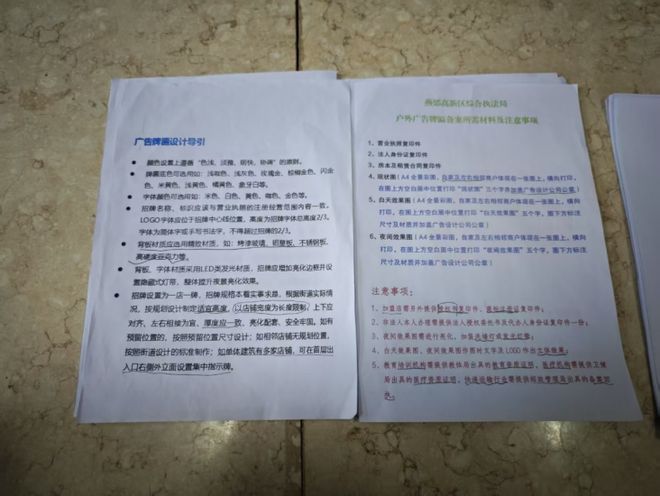 广告牌匾设计导引
● 颜色设置上遵循“色浅、淡雅、明快、协调”的原则。
● 牌匾底色可选用如:浅咖色、浅灰色、玫瑰金、棕榈金色、闪金
色、米黄色、浅黄色、橘黄色、象牙白等。
● 字体颜色可选用如:米色、白色、黄色、咖色、金色等。
● 招牌名称、标识应该与营业执照的注册经营范围内容一致。
LOGO字体应位于招牌中心线位置,高度为招牌字体总高度2/3。
字体为简体字或手写书法字,不得超过招牌的2/3。
● 背板材质应选用精致材质,如:烤漆玻璃、铝塑板、不锈钢板、
高硬度亚克力等。
● 背板、字体材质采用LED类发光材质,招牌应增加亮化边框并设
置隐藏式灯带,整体提升夜景亮化效果。
● 招牌设置为一店一牌,招牌规格本着实事求是,根据街道实际情
况,按规划设计制定适宜高度,以店铺宽度为长度限制,上下应
对齐、左右相接为宜、厚度应一致、亮化配套、安全牢固。如有
预留位置的,按照预留位置尺寸设计;如相邻店铺无规划位置,
按照街道设计的标准制作;如单体建筑有多家店铺,可在首层出
入口右侧外立面设置集中指示牌。
燕郊高新区综合执法局
户外广告牌匾备案所需材料及注意事项
1、营业执照复印件
2、法人身份证复印件
3、房本及租赁合同复印件
4、现状图(A4全景彩图,自家及左右相邻商户体现在一张图上,横向打印,
在图上方空白居中位置打印“现状图”三个字并加盖广告设计公司公章)
5、白天效果图(A4全景彩图,自家及左右相邻商户体现在一张图上,横向
打印,在图上方空白居中位置打印“白天效果图”五个字,图下方标注
尺寸及材质并加盖广告设计公司公章)
6、夜间效果图(A4全景彩图,自家及左右相邻商户体现在一张图上,横向
打印,在图上方空白居中位置打印“夜间效果图”五个字,图下方标注
尺寸及材质并加盖广告设计公司公章)
注意事项:
1、加盟店需另外提供授权书复印件、商标注册证复印件;
2、非法人本人办理需提供法人授权委托书及代办人身份证复印件一份;
3、夜间效果图要进行亮化,如加洗墙灯或发光灯箱;
4、白天效果图、夜间效果图作图时文字及LOGO作出立体效果;
5、教育培训机构需要提供教体局出具的教育资质证明,医疗机构需提供卫健
局出具的医疗资质证明,快递运输行业需要提供邮政管理局出具的备案回
执;